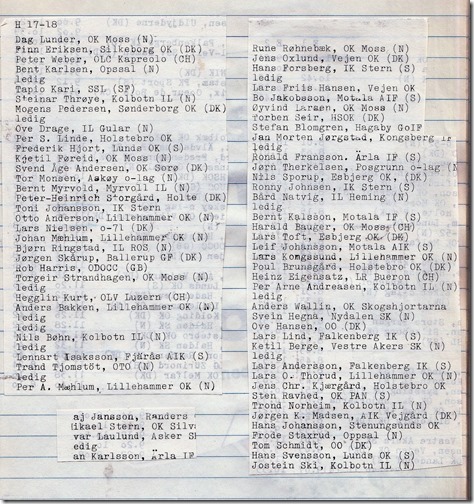 H 17-18
Dag Lunder, OK Moss (N)
Finn Eriksen, Silkeborg OK (DK)
Peter Weber, OLC Kapreolo (CH)
Bent Karlsen, Oppsal (N)
ledig
Tapio Kari, SSL (SF)
Steinar Thrøye, Kolbotn IL (N)
Mogens Pedersen, Sønderborg OK (DK)
ledig
Ove Drage, IL Gular (N)
Per S. Linde, Holstebro OK
Frederik Hjort, Lunds OK (S)
Kjetil Føreid, OK Moss (N)
Svend Åge Andersen, OK Sorø (DK)
Tor Monsen, Askøy o-lag (N)
Bernt Myrvold, Myrvoll IL (N)
Peter-Heinrich Storgård, Holte (DK)
Toni Johansson, IK Stern
Otto Anderson, Lillehammer OK (N)
Lars Nielsen, o-71 (DK)
Johan Mæhlum, Lillehammer OK (N)
Bjørn Ringstad, IL ROS (N)
Jørgen Skårup, Ballerup GF (DK)
Rob Harris, ODOCC (GB)
Torgeir Strandhagen, OK Moss (N)
ledig
Hegglin Kurt, OLV Luzern (CH)
Anders Bakken, Lillehammer OK (N)
ledig
ledig
Nils Bøhn, Kolbotn IL (N)
ledig
Lennart Isaksson, Fjärås AIK (S)
Trand Tjomstöt, OTO (N)
ledig
Per A. Mæhlum, Lillehammer OK (N)
aj Jansson, Randers
ikael Stern, OK Silv
var Laulund, Asker S
edig
an Karlsson, Ärla IF
Rune Røhnebæk, OK Moss (N)
Jens Oxlund, Vejen OK (DK)
Hans Forsberg, IK Stern (S)
ledig
Lars Friis Hansen, Vejen OK
Bo Jakobsson, Motala AIF (S)
Øyvind Larsen, OK Moss (N)
Torben Seir, HSOK (DK)
Stefan Blomgren, Hagaby GoIF
Jan Morten Jørgstad, Kongsberg
ledig
Ronald Fransson. Ärla IF (S)
Jørn Therkelsen, Posgrunn o-lag (N
Nils Sporup, Esbjerg OK. (DK)
Ronny Johnsen, IK Stern (S)
Bård Natvig, IL Heming (N)
ledig
Bernt Kalsson, Motala IF (S)
Harald Bauger, OK Moss (CH)
Lars Toft, Esbjerg OK (DK)
Leif Johansson, Motala AIK (S)
Lars Kongssund, Lillehammer OK (N)
Poul Brunsgård, Holstebro OK (DK)
Heinz Eigensatz, LR Bueron (CH)
Per Arne Andreasen, Kolbotn IL (N)
ledig
Anders Wallin, OK Skogshjortarna
Svein Hegna, Nydalen SK (N)
Ove Hansen, OO (DK)
Lars Lind, Falkenberg IK (S)
Ketil Berge, Vestre Akers SK (N)
ledig
Lars Andersson, Falkenberg IK (S)
Lars O. Thorud, Lillehammer OK (N)
Jens Chr. Kjærgård, Holstebro OK
Sten Ravhed, OK PAN (S)
Trond Norheim, Kolbotn IL (N)
Jørgen K. Madsen, AIK Vejgård (DK)
Hans Johansson, Stenungsunds OK
Frode Staxrud, Oppsal (N)
Tom Schmidt, OO (DK)
Hans Svensson, Lunds OK (S)
Jostein Ski, Kolbotn IL (N)